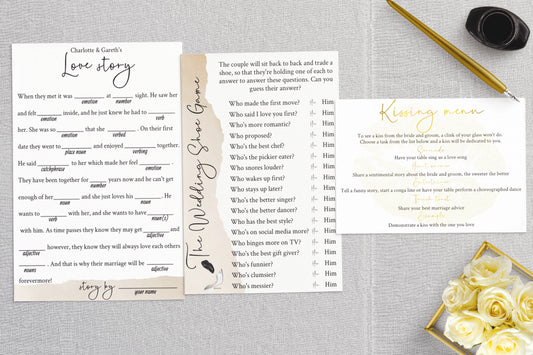 Charlotte & Gareth's
Love story
When they met it was ______ at ______ sight. He saw her
emotion number
and felt ______ inside, and he just knew he had to ______
emotion verb
her. She was so ______ that she ______. On their first
emotion verb
date they went to ______ and enjoyed ______ together.
place noun verbing
He said ______ to her which made her feel ______.
catchphrase emotion
They have been together for ______ years now and he can't get
number
enough of her ______ and she just loves his ______. He
nouns noun
wants to ______ with her, and she wants to have ______
verb noun(s)
with him. As time passes they know they may get ______ and
adjective
______ however, they know they will always love each others
adjective
______. And that is why their marriage will be ______
nouns adjective
forevermore!
story by ______
your name
The Wedding Shoe Game
The couple will sit back to back and trade a
shoe, so that they're holding one of each to
to answer these questions. Can you
guess their answer?
Who made the first move? Him
Who said I love you first? Him
Who's more romantic? Him
Who proposed? Him
Who's the best chef? Him
Who's the pickier eater? Him
Who snores louder? Him
Who wakes up first? Him
Who stays up later? Him
Who's the better singer? Him
Who's the better dancer? Him
Who has the best style? Him
Who's on social media more? Him
Who binges more on TV? Him
Who's the best gift giver? Him
Who's funnier? Him
Who's clumsier? Him
Who's messier? Him
Kissing menu
To see a kiss from the bride and groom, a clink of your glass won't do
Choose a task from the list below and a kiss will be dedicated to you.
Have your table sing us a love song
Share a sentimental story about the bride and groom, the sweeter the better
Tell a funny story, start a conga line or have your table perform a choreographed dance
Share your best marriage advice
Demonstrate a kiss with the one you love